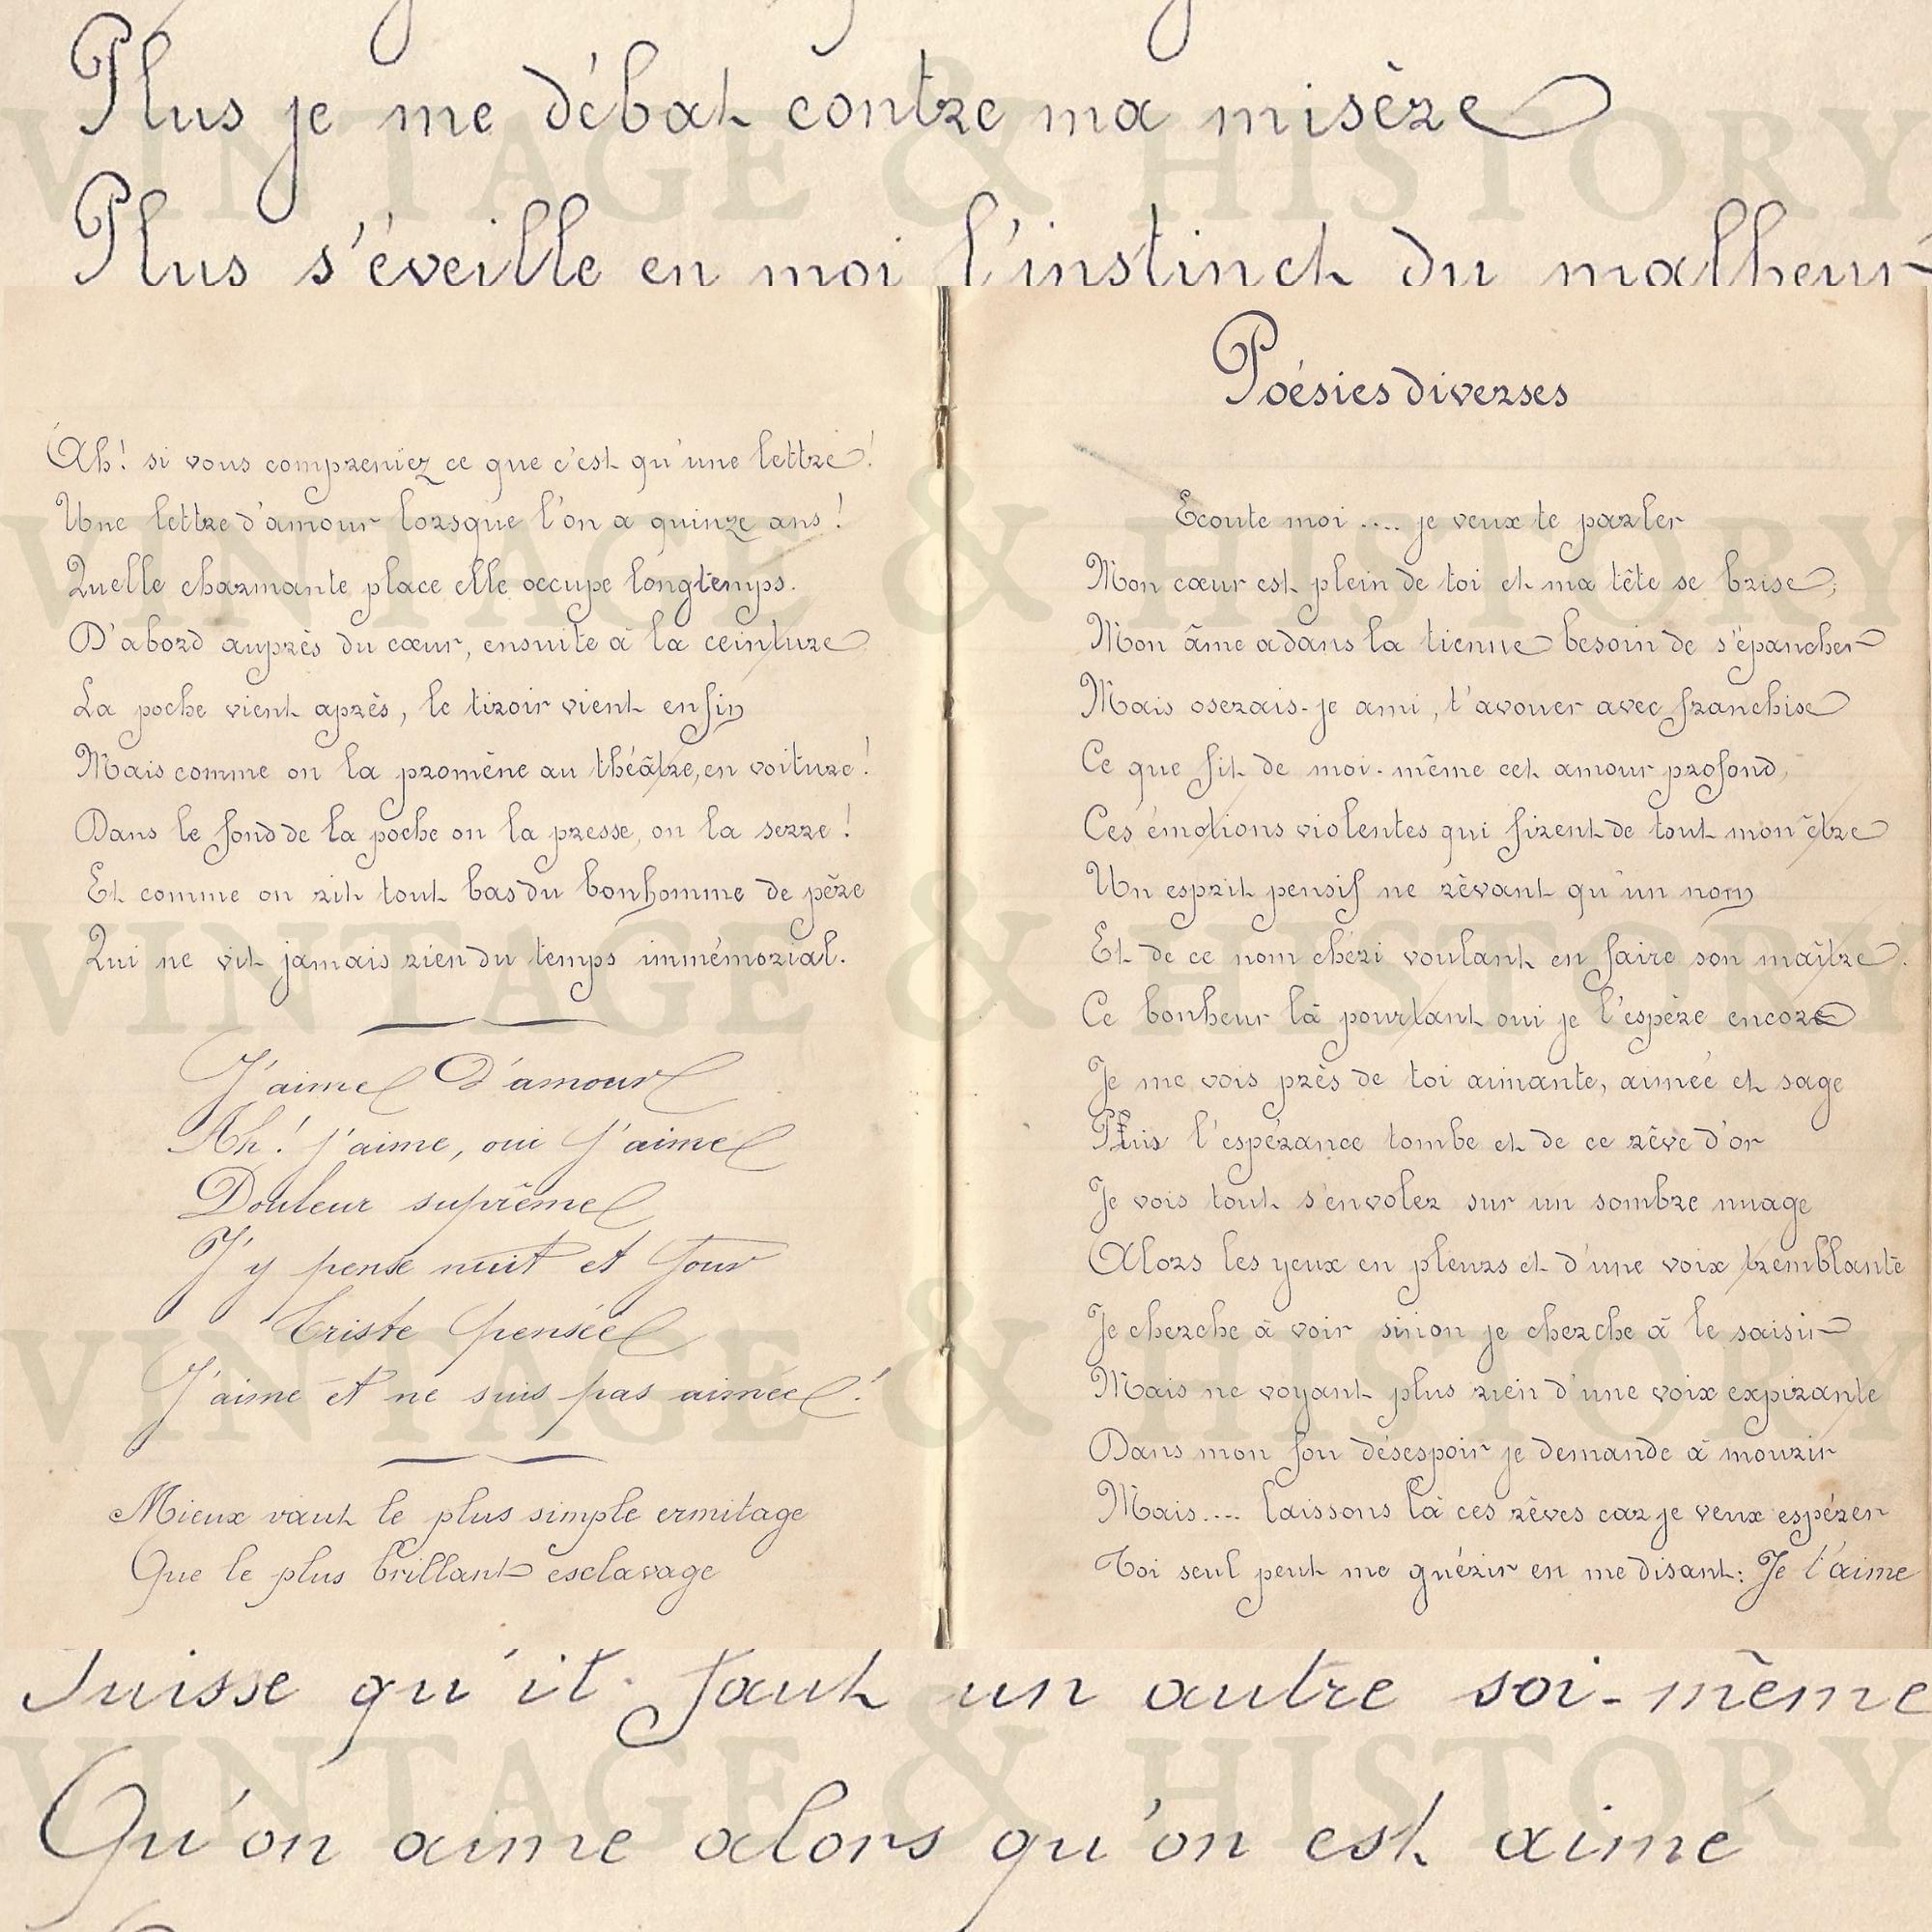 Plus je me débat contre ma misère
Plus s'éveille en moi l'instinct du malheur
Ah! si vous compreniez ce que c'est qu'une lettre!
Une lettre d'amour lorsque l'on a quinze ans!
Quelle charmante place elle occupe longtemps.
D'abord auprès du cœur, ensuite à la ceinture
La poche vient après, le tiroir vient enfin
Mais comme on la promène au théâtre, en voiture!
Dans le fond de la poche on la presse, on la serre!
Et comme on rit tout bas du bonhomme de père
Qui ne vit jamais rien du temps immémorial.
J'aime d'amour
Ah! j'aime, oui j'aime
Douleur suprême
J'y pense nuit et jour
Triste pensée
J'aime et ne suis pas aimée!
Mieux vaut le plus simple ermitage
Que le plus brillant esclavage
Poésies diverses
Ecoute moi .... je veux te parler
Mon cœur est plein de toi et ma tête se brise;
Mon âme a dans la tienne besoin de s'épancher
Mais oserais-je ami, t'avouer avec franchise
Ce que fit de moi-même cet amour profond,
Ces émotions violentes qui firent de tout mon être
Un esprit pensif ne rêvant qu'un nom
Et de ce nom chéri voulant en faire son maître.
Ce bonheur là pourtant oui je l'espère encore
Je me vois près de toi aimante, aimée et sage
Puis l'espérance tombe et de ce rêve d'or
Je vois tout s'envoler sur un sombre nuage
Alors les yeux en pleurs et d'une voix tremblante
Je cherche à voir sinon je cherche à le saisir
Mais ne voyant plus rien d'une voix expirante
Dans mon fou désespoir je demande à mourir
Mais.... laissons là ces rêves car je veux espérer
Toi seul peut me guérir en me disant: Je t'aime
Suisse qu'it faut un autre soi-même
Qu'on aime alors qu'on est aimé
VINTAGE & HISTORY
VINTAGE & HISTORY
VINTAGE & HISTORY
VINTAGE & HISTORY
VINTAGE & HISTORY